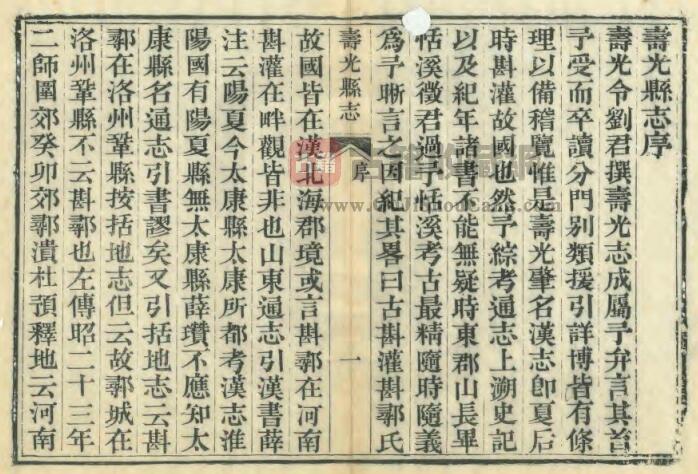 壽光縣志序
壽光令劉君撰壽光志成屬予弁言其首
予受而卒讀分門别類援引詳博皆有條
理以備稽覽惟是壽光肇名漢志卽夏后
時斟灌故國也然予綜考通志上溯史記
以及紀年諸書不能無疑時東郡山長畢
恬溪徵君過予恬溪考古最精隨時隨義
爲予晰言之因紀其畧曰古斟灌斟鄩氏
壽光縣志 序 一
故國皆在漢北海郡境或言斟鄩在河南
斟灌在畔觀皆非也山東通志引漢書薛
注云陽夏今太康縣太康所都考漢志淮
陽國有陽夏縣無太康縣薛瓚不應知太
康縣名通志引書謬矣又引括地志云斟
鄩在洛州鞏縣按括地志但云故鄩城在
洛州鞏縣不云斟鄩也左傳昭二十三年
二師圍郊癸卯郊鄩潰杜預釋地云河南
www.GujiShouCang.com